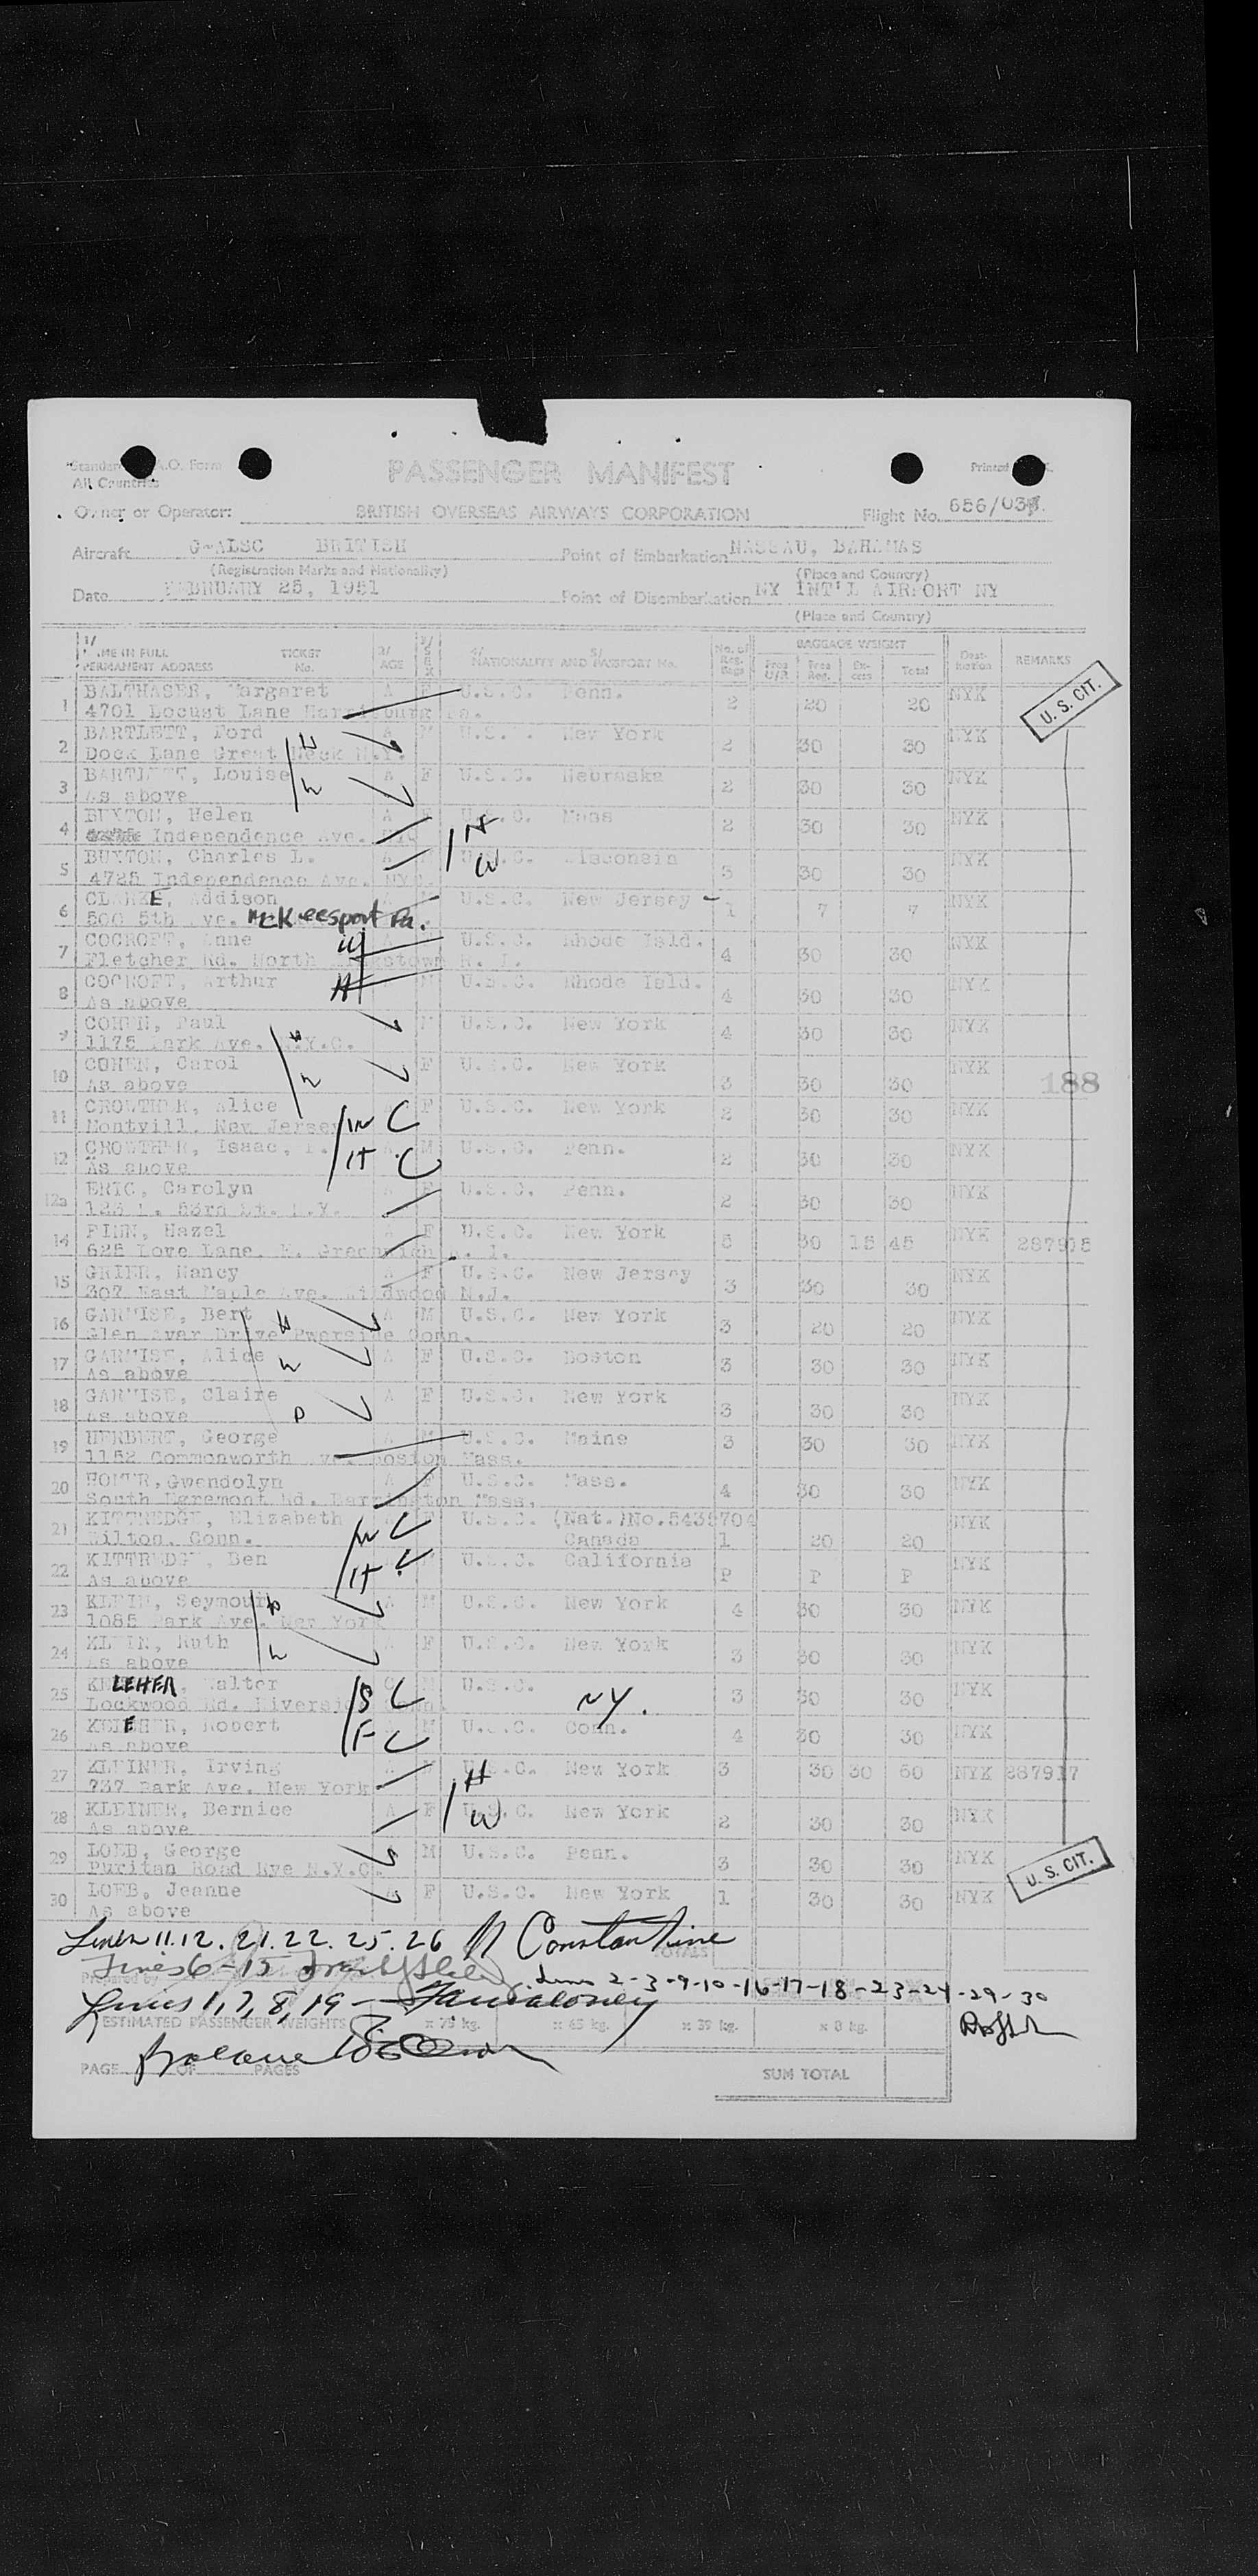 All Countries
PASSENGER MANIFEST
Owner or Operator: BRITISH OVERSEAS AIRWAYS CORPORATION Flight No. 656/03
Aircraft G-ALSC BRITISH Point of Embarkation NASSAU, BAHAMAS
(Registration Marks and Nationality) (Place and Country)
Date FEBRUARY 25, 1951 Point of Disembarkation NY INT'L AIRPORT NY
(Place and Country)
NAME IN FULL TICKET No. AGE SEX NATIONALITY AND PASSPORT No. No. of Reg. Bags BAGGAGE WEIGHT Free Reg. Excess Total Destination REMARKS
PERMANENT ADDRESS
1 BALTHASER, Margaret A F U.S.C. Penn. 2 20 20 NYK U. S. CIT.
4701 Locust Lane Harrisburg Pa.
2 BARTLETT, Ford A M U.S.C. New York 2 30 30 NYK
Dock Lane Great Neck N.Y. H
3 BARTLETT, Louise A F U.S.C. Nebraska 2 30 30 NYK
As above W
4 BUXTON, Helen U.S.C. Mass 2 30 30 NYK
Independence Ave. NYC H
5 BUXTON, Charles L. U.S.C. Wisconsin 30 30 NYK
4725 Independence Ave. NYC. W
6 CLARKE, Addison M U.S.C. New Jersey 1 7 7 NYK
500 5th Ave. McKeesport Pa.
7 COCROFT, Anne W U.S.C. Rhode Isld. 4 30 30 NYK
Fletcher Rd. North R. I.
8 COCROFT, Arthur H M U.S.C. Rhode Isld. 4 30 30 NYK
As above
9 COHEN, Paul M U.S.C. New York 4 30 30 NYK
1175 Park Ave. N.Y.C. H
10 COHEN, Carol F U.S.C. New York 3 30 30 NYK 188
As above W
11 CROWTHER, Alice F U.S.C. New York 2 30 30 NYK
Montvill, New Jersey W C
12 CROWTHER, Isaac, M U.S.C. Penn. 2 30 30 NYK
As above H C
12a ERIC, Carolyn F U.S.C. Penn. 2 30 30 NYK
53rd St. N.Y.
14 FINN, Hazel F U.S.C. New York 5 30 15 45 NYK 287915
625 Love Lane, E. Greenwich R. I.
15 GRIER, Nancy A F U.S.C. New Jersey 3 30 30 NYK
307 East Maple Ave. Wildwood N.J.
16 GARMISE, Bert H A M U.S.C. New York 3 20 20 NYK
Glen Avar Drive Conn.
17 GARMISE, Alice W A F U.S.C. Boston 3 30 30 NYK
As above
18 GARMISE, Claire A F U.S.C. New York 3 30 30 NYK
As above D
19 HERBERT, George A M U.S.C. Maine 3 30 30 NYK
1152 Commonworth Ave. Boston Mass.
20 HOMER, Gwendolyn A F U.S.C. Mass. 4 30 30 NYK
South Egremont Rd. Barrington Mass.
21 KITTREDGE, Elizabeth F U.S.C. (Nat.)No.5435704 NYK
Wilton, Conn. W C Canada 1 20 20
22 KITTREDGE, Ben U.S.C. California P P P NYK
As above H C
23 KLEIN, Seymour H A M U.S.C. New York 4 30 30 NYK
1085 Park Ave. New York
24 KLEIN, Ruth W F U.S.C. New York 3 30 30 NYK
As above
25 LEHER, Walter S C M U.S.C. NY. 3 30 30 NYK
Lockwood Rd. Riverside Conn.
26 Robert F C M U.S.C. Conn. 4 30 30 NYK
As above
27 KLEINER, Irving H U.S.C. New York 3 30 30 60 NYK 287917
737 Park Ave. New York
28 KLEINER, Bernice A F W U.S.C. New York 2 30 30 NYK
As above
29 LOEB, George M U.S.C. Penn. 3 30 30 NYK
Puritan Road Rye N.Y.C. U. S. CIT.
30 LOEB, Jeanne F U.S.C. New York 1 30 30 NYK
As above
Lines 11. 12. 21. 22. 25. 26 Constantine
TOTALS
Lines 6-15
Prepared by Lines 2-3-9-10-16-17-18-23-24-29-30
Lines 1, 7, 8, 19
ESTIMATED PASSENGER WEIGHTS x 75 kg. x 65 kg. x 39 kg. x 8 kg.
Balance
PAGE OF PAGES SUM TOTAL